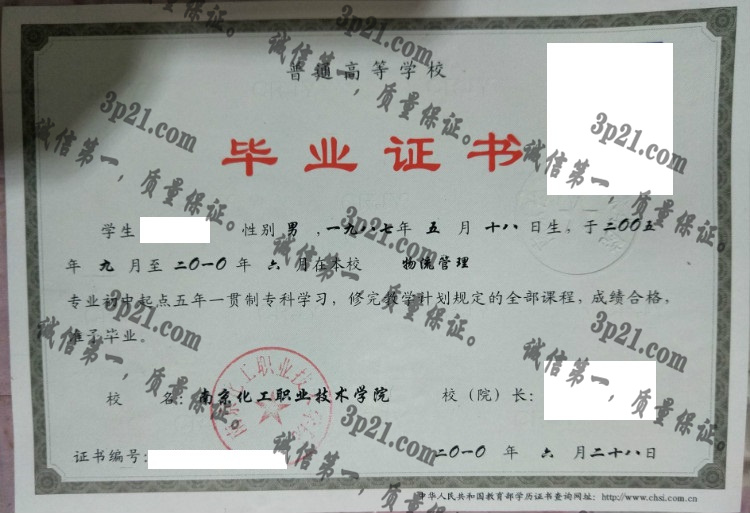 普通高等学校
毕业证书
学生 性别 男 ,一九八七年 五 月 十八日生,于二〇〇五
年 九 月至二〇一〇 年 六 月在本校 物流管理
专业初中起点五年一贯制专科学习,修完教学计划规定的全部课程,成绩合格,
准予毕业。
校 名:南京化工职业技术学院 校(院)长:
南京化工职业技术学院
证书编号: 二〇一〇 年 六 月二十八日
中华人民共和国教育部学历证书查询网址:http://www.chsi.com.cn
3p21.com
诚信第一,质量保证。
3p21.com
诚信第一,质量保证。
3p21.com
诚信第一,质量保证。
3p21.com
诚信第一,质量保证。
3p21.com
诚信第一,质量保证。
3p21.com
诚信第一,质量保证。
3p21.com
诚信第一,质量保证。
3p21.com
诚信第一,质量保证。